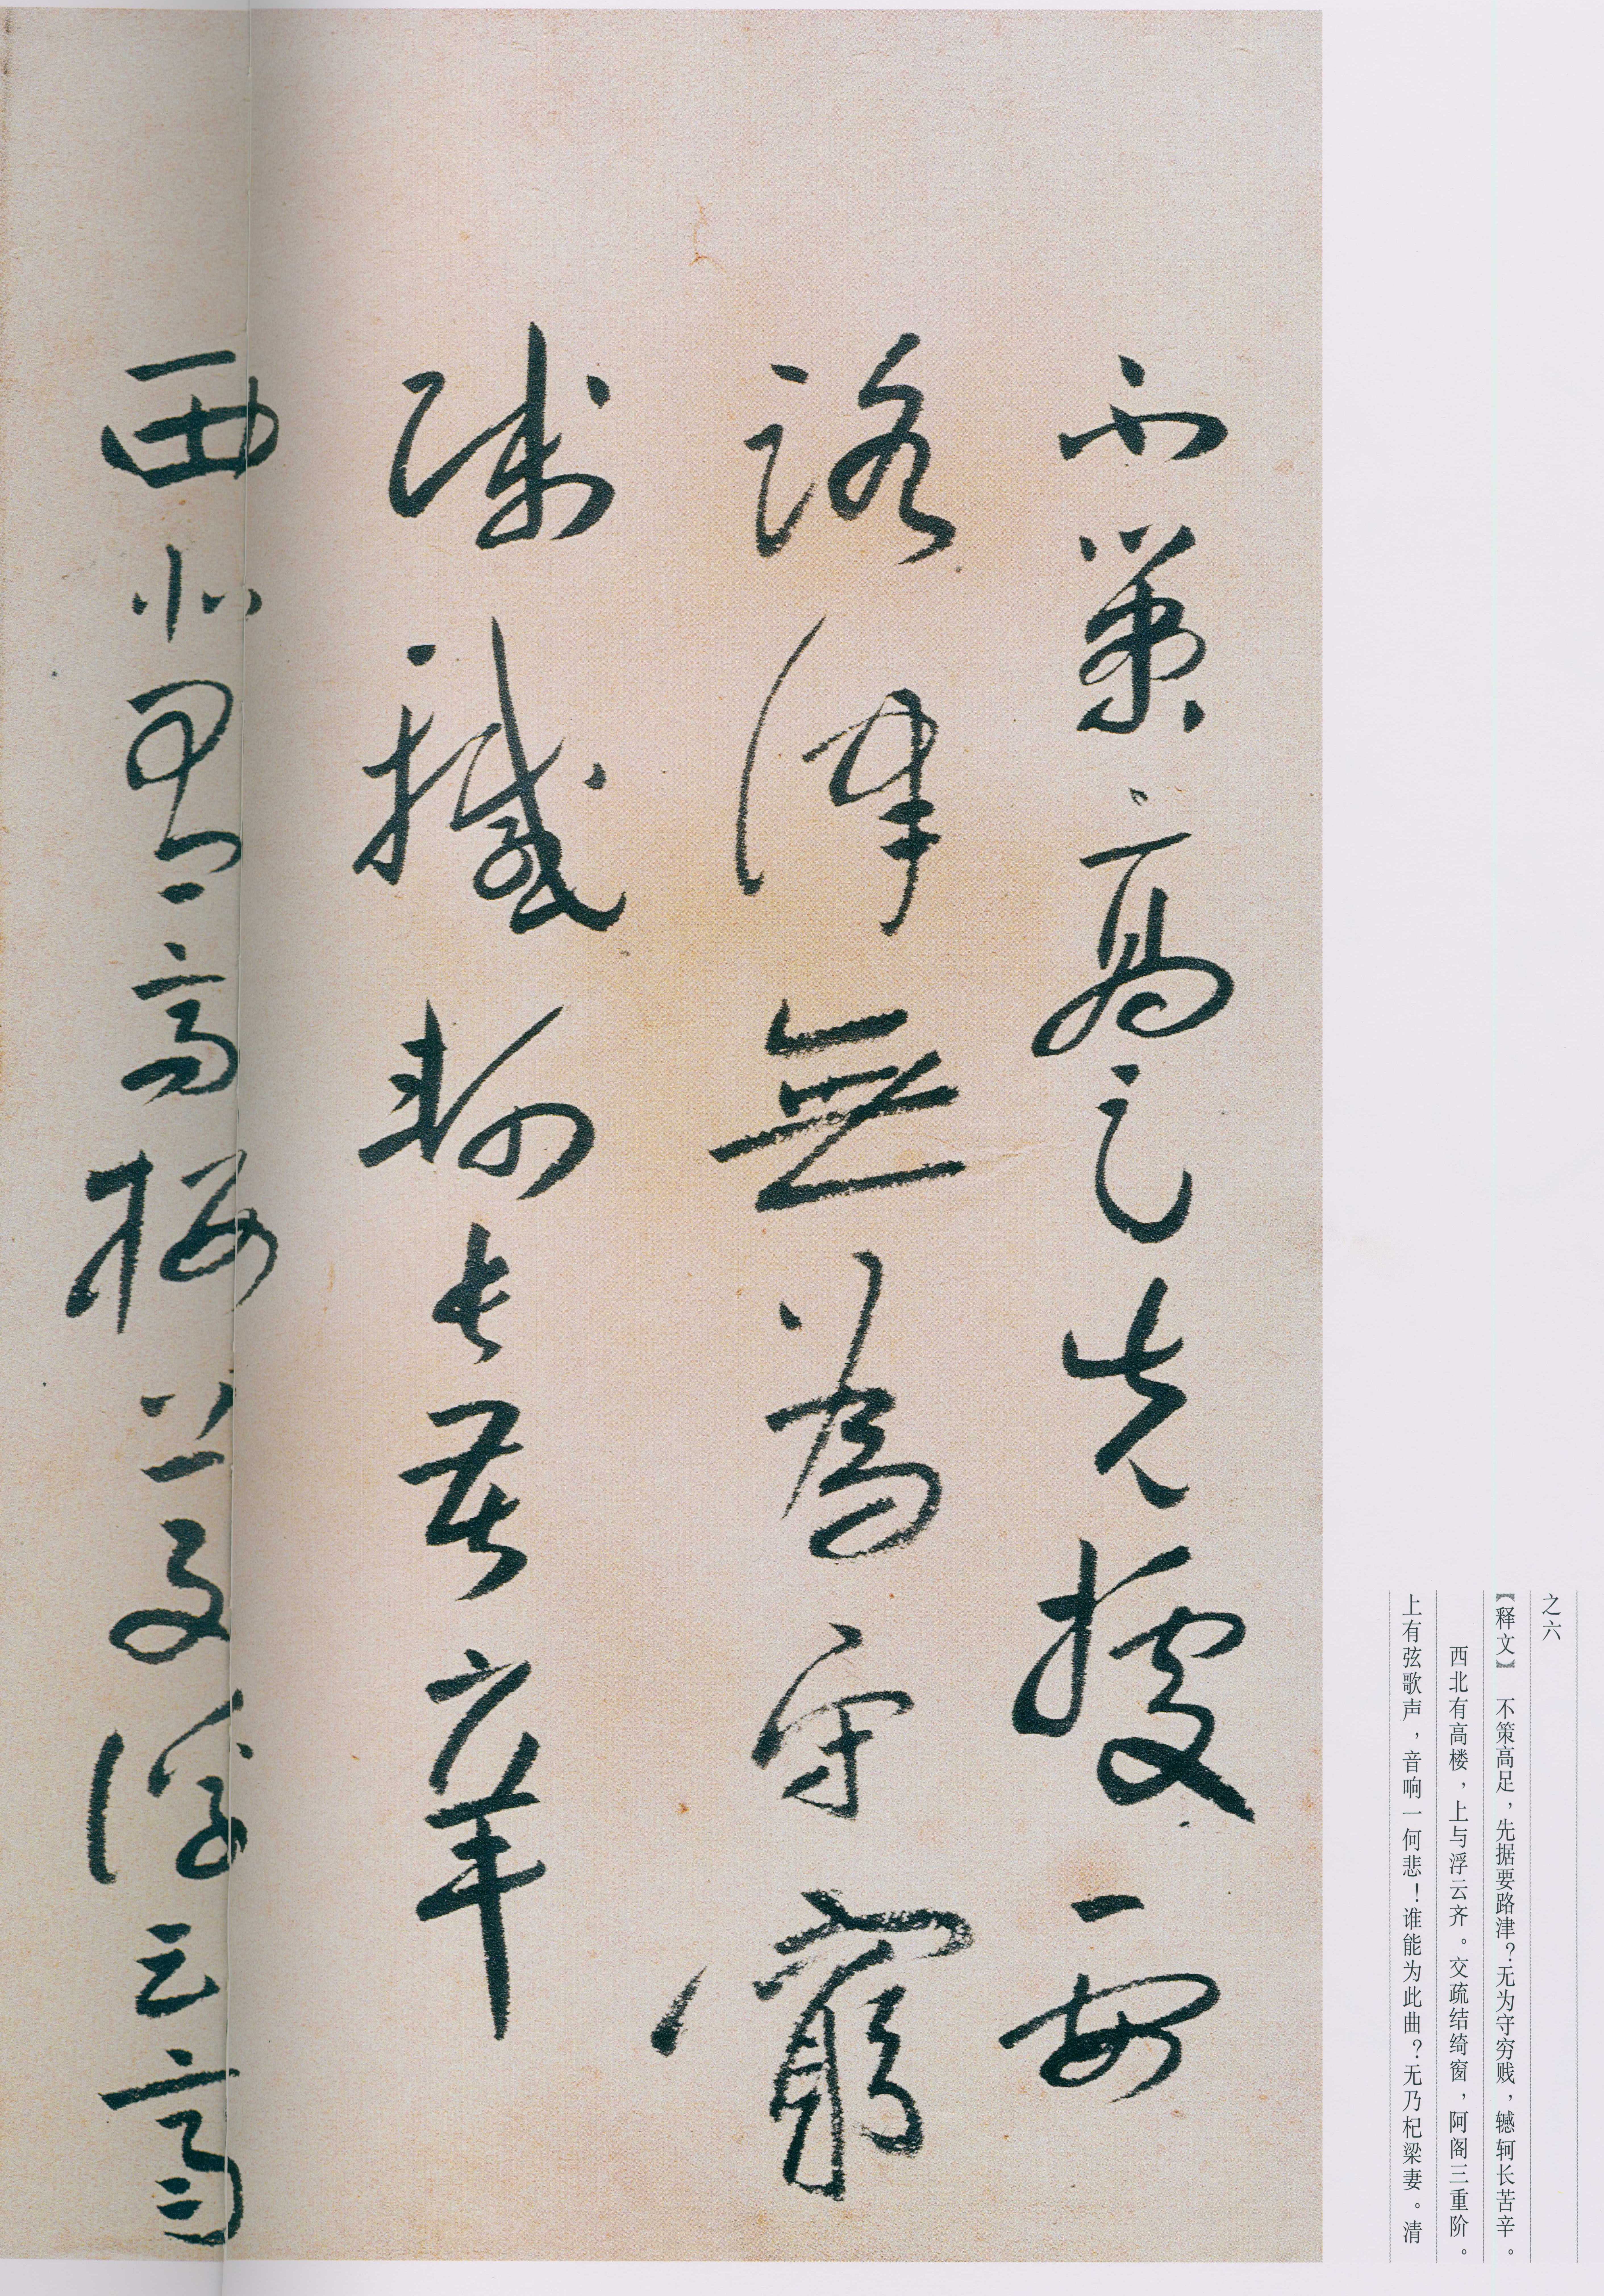 之六
【释文】 不策高足，先据要路津？无为守穷贱，轗轲长苦辛。
西北有高楼，上与浮云齐。交疏结绮窗，阿阁三重阶。
上有弦歌声，音响一何悲！谁能为此曲？无乃杞梁妻。清
不策高足先據要
路津無為守窮
賤轗軻長苦辛
西北有高樓上與浮云齊